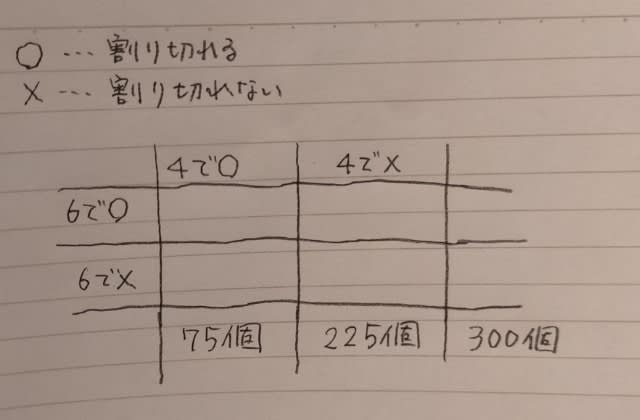 ○ … 割り切れる
× … 割り切れない
4で○ 4で×
6で○
6で×
75個 225個 300個